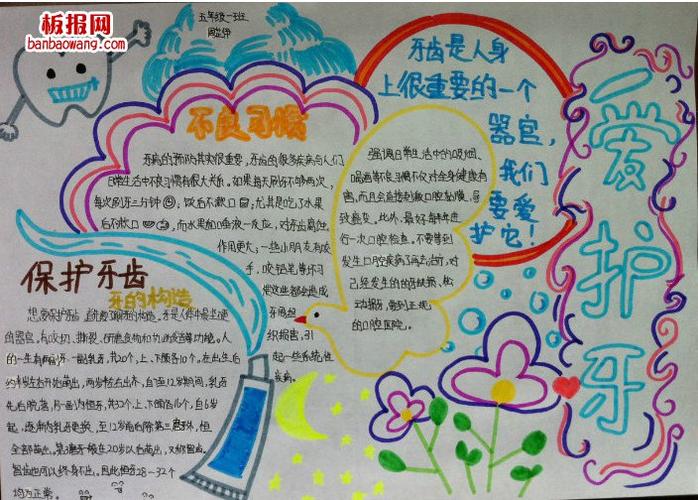 板报网
banbaowang.com
五年级一班
不良习惯
牙病的预防其实很重要，牙齿的很多疾病与人们
日常生活中不良习惯有很大关系。如果每天刷牙不够两次，
每次刷牙三分钟
饭后不漱口
尤其是吃了水果
后不漱口
而水果加唾液一反应，对牙齿腐蚀
作用更大；一些小朋友有咬
手，咬铅笔等坏习
这些都会造成
牙周组
织损害，引
起一些系统性
疾病。
牙齿是人身
上很重要的一个
器官，
我们
要爱
护它！
强调日常生活中的吸烟、
喝酒等不良习惯不仅对全身健康有
害，而且会直接刺激口腔黏膜，导
致癌变。此外，最好每半年进
行一次口腔检查。不要等到
发生口腔疾病了再去治疗，对
己经发生的的牙缺损，松
动脱牙，要到正规
的口腔医院。
爱护牙
保护牙齿
牙的构造
想要保护牙齿
牙的构造。牙是人体中最坚硬
的器官，有咬切、撕裂、
等功能。人
的一生有两副牙
一副乳牙，共20个，上、下颌各10个。在出生后
约半岁左右开始萌出，两岁半左右出齐，自6至12岁期间，乳牙
先后脱落，另一副为恒牙，共32个，上、下颌各16个，自6岁
起，逐渐为乳牙更换，至12岁前后除第三磨牙外，恒牙
全部萌出。第三磨牙一般在20岁以后萌出，又称智齿。
智齿也可以终身不出。因此恒牙28—32个
均为正常。